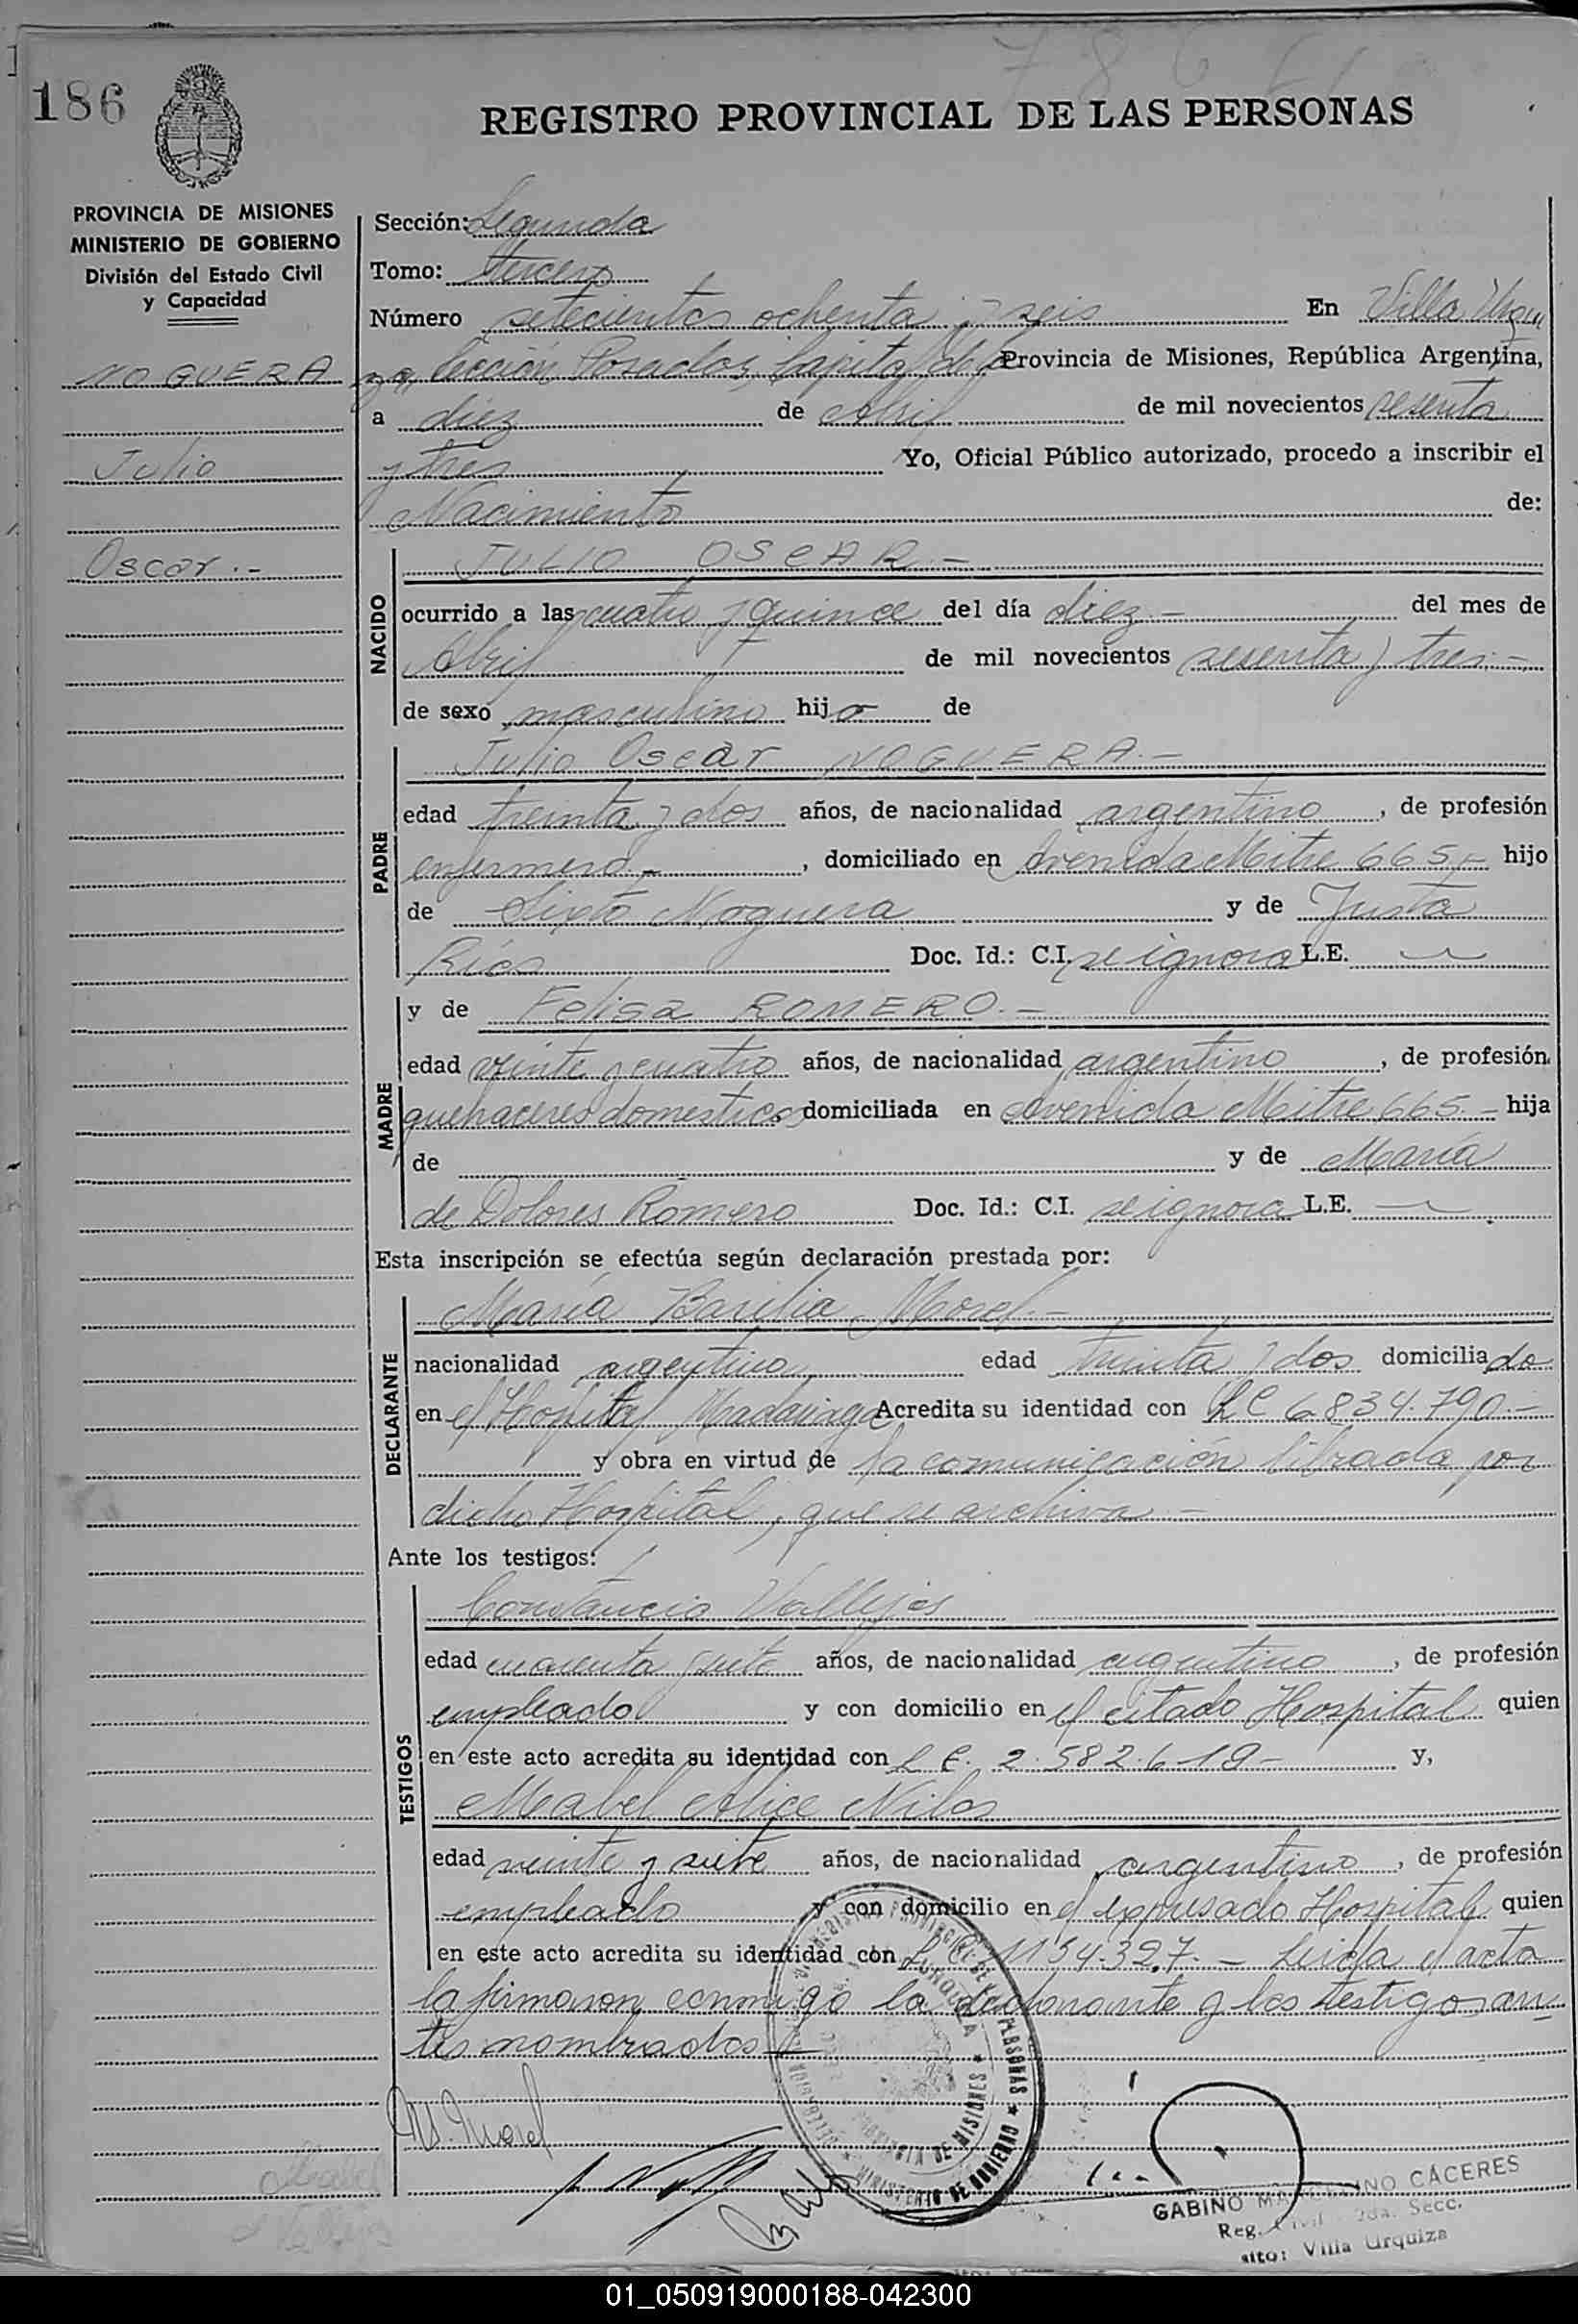 186
REGISTRO PROVINCIAL DE LAS PERSONAS
PROVINCIA DE MISIONES
MINISTERIO DE GOBIERNO
División del Estado Civil
y Capacidad
NOGUERA
Julio
Oscar.-
Sección: Segunda
Tomo: tercero
Número setecientos ochenta y seis En Villa Urqui
za, Sección Posadas, Capital de la Provincia de Misiones, República Argentina,
a diez de Abril de mil novecientos sesenta
y tres Yo, Oficial Público autorizado, procedo a inscribir el
Nacimiento de:
NACIDO
JULIO OSCAR.-
ocurrido a las cuatro y quince del día diez.- del mes de
Abril de mil novecientos sesenta y tres.-
de sexo masculino hijo de
PADRE
Julio Oscar NOGUERA.-
edad treinta y dos años, de nacionalidad argentino, de profesión
enfermero.-, domiciliado en Avenida Mitre 665.- hijo
de Sixto Noguera y de Justa
Ríos Doc. Id.: C.I. se ignora L.E.
MADRE
y de Felisa ROMERO.-
edad veinte y cuatro años, de nacionalidad argentino, de profesión
quehaceres domesticos domiciliada en Avenida Mitre 665.- hija
de y de María
de Dolores Romero Doc. Id.: C.I. se ignora L.E.
Esta inscripción se efectúa según declaración prestada por:
DECLARANTE
María Basilia Morel.-
nacionalidad argentino edad treinta y dos domiciliado
en el Hospital Madariaga Acredita su identidad con LC 6.834.790.-
y obra en virtud de la comunicación librada por
dicho Hospital, que se archiva.-
Ante los testigos:
TESTIGOS
Constancio Vallejos
edad cuarenta y siete años, de nacionalidad argentino, de profesión
empleado y con domicilio en el citado Hospital quien
en este acto acredita su identidad con L E. 2.582.619- y,
Mabel Alice
edad veinte y siete años, de nacionalidad argentino, de profesión
empleado y con domicilio en el expresado Hospital quien
en este acto acredita su identidad con L C 1134.327.- Leida el acta
la firmaron conmigo la declarante y los testigos an
tes nombrados
M. Morel
REGISTRO PROVINCIAL DE LAS PERSONAS
PROVINCIA DE MISIONES
MINISTERIO DE GOBIERNO
GABINO MARCELINO CÁCERES
Reg. Civil 2da. Secc.
Villa Urquiza
01_050919000188-042300